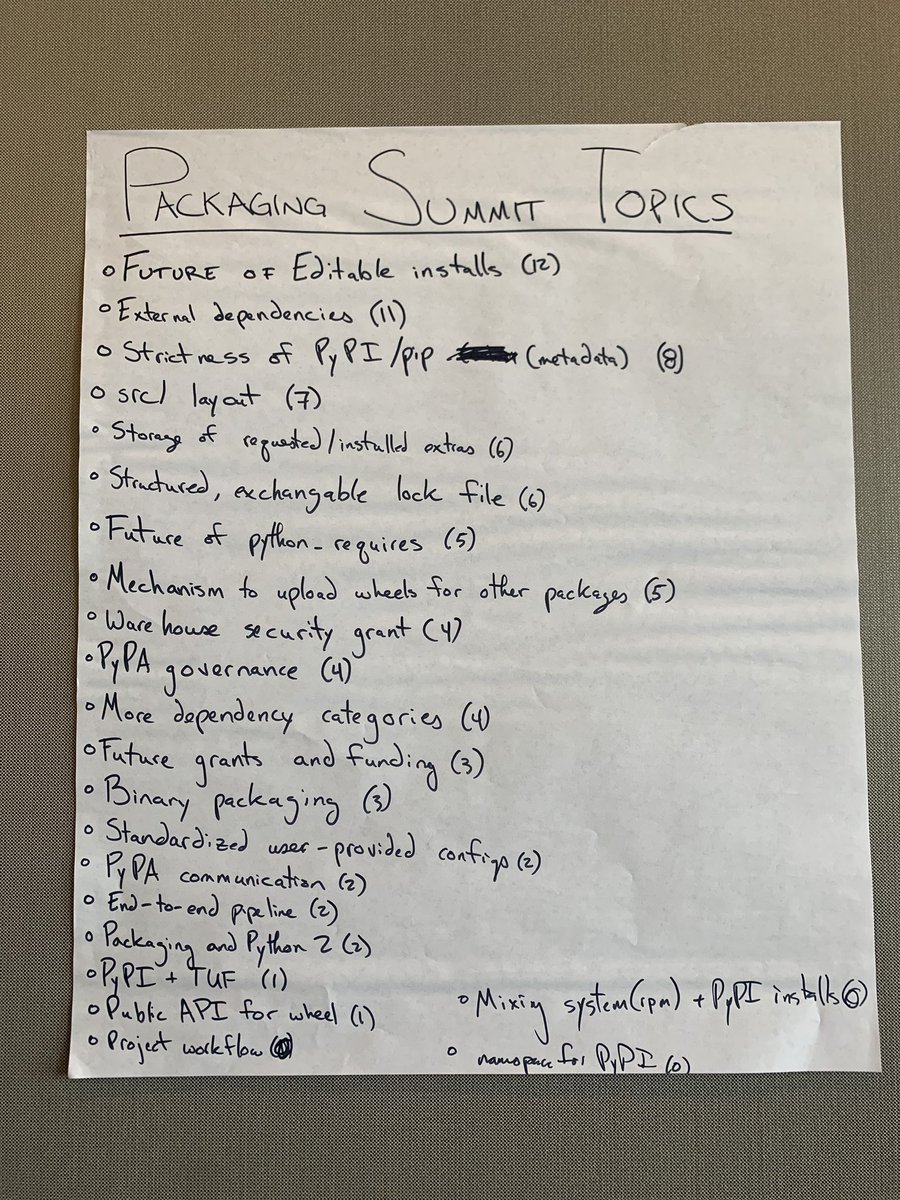 PACKAGING SUMMIT TOPICS
FUTURE OF Editable installs (12)
External dependencies (11)
Strictness of PyPI/pip (metadata) (8)
src/ layout (7)
Storage of requested/installed extras (6)
Structured, exchangable lock file (6)
Future of python-requires (5)
Mechanism to upload wheels for other packages (5)
Warehouse security grant (4)
PyPA governance (4)
More dependency categories (4)
Future grants and funding (3)
Binary packaging (3)
Standardized user-provided configs (2)
PyPA communication (2)
End-to-end pipeline (2)
Packaging and Python 2 (2)
PyPI + TUF (1)
Public API for wheel (1)
Project workflow
Mixing system(rpm) + PyPI installs
namespace for PyPI (0)